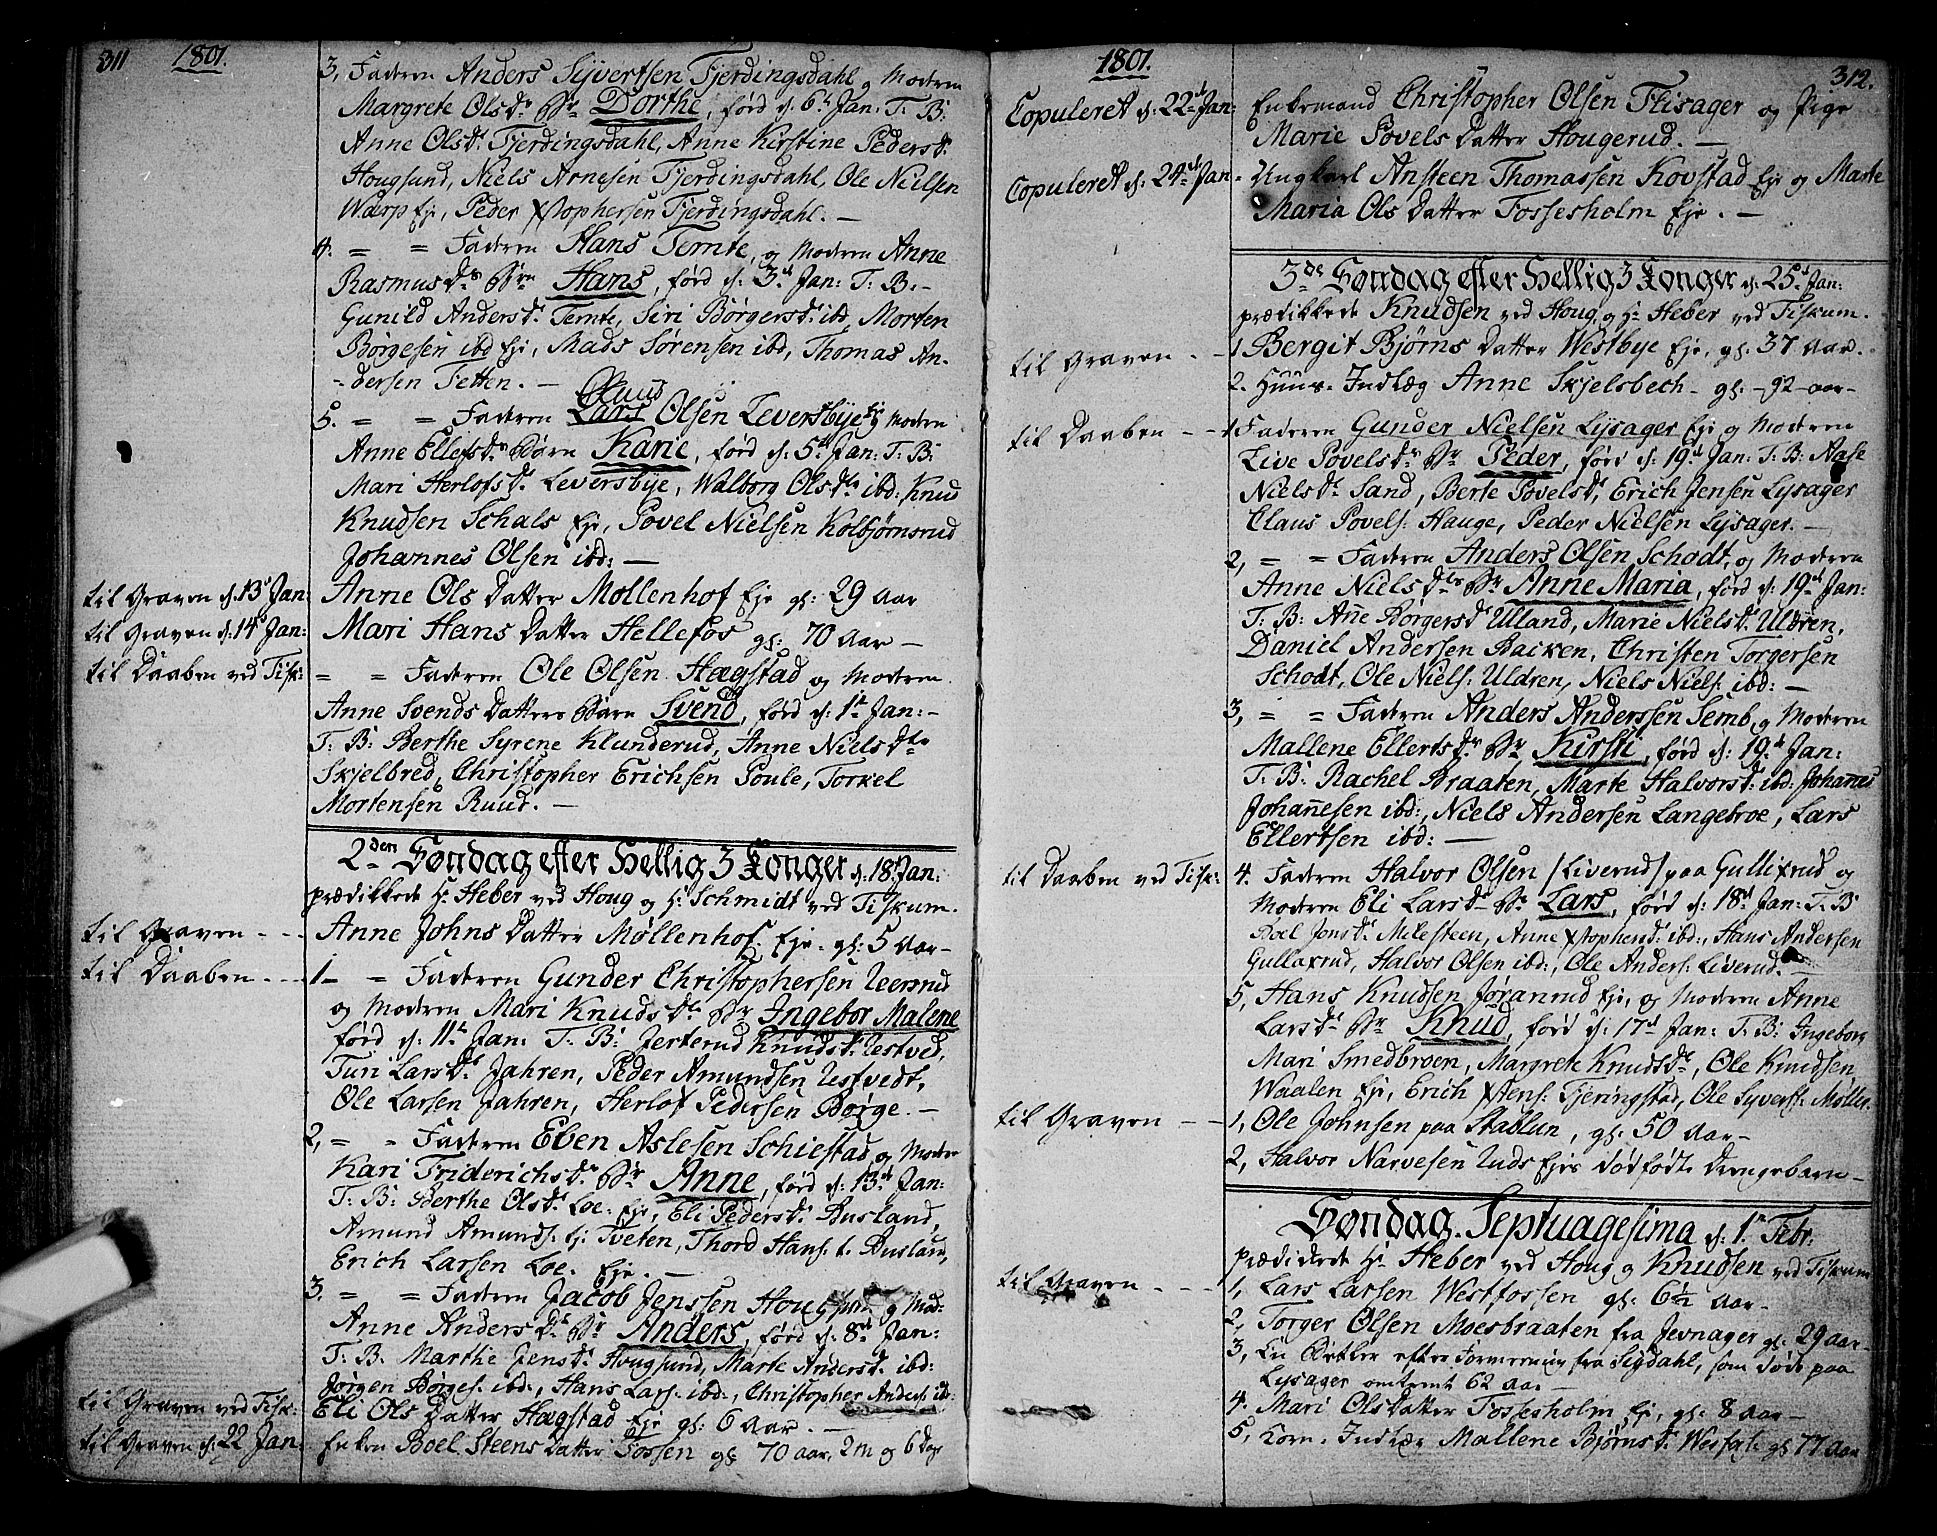 311 1801.
3, Faderen Anders Syvertsen Fjerdingsdahl og Moderen
Margrete Olsdr Br Dorthe, förd d: 6t Jan: T: B:
Anne Olsdr Fjerdingsdahl, Anne Kirstine Pedersdr
Hougsund, Niels Arnesen Fjerdingsdahl, Ole Nielsen
Warp Eje, Peder Xstophersen Fjerdingsdahl. —
4. = = Faderen Hans Temte, og Moderen Anne
Rasmusdr Brn Hans, förd d: 3d Jan: T. B. -
Gunild Andersdr Temte, Siri Börgersdr ibd, Morten
Börgesen ibd Eje, Mads Sörensen ibd, Thomas An-
-dersen Tetten. —
Knud
5. = = Faderen Lars Olsen Leversbye Ej og Moderen
Anne Ellefsdr Börn Karie, förd d: 5t Jan: T: B:
Mari Herlofsdr Leversbye, Walborg Olsdr ibd: Knud
Knudsen Schals Eje, Povel Nielsen Kolbjörnsrud
Johannes Olsen ibd: —
til Graven d. 13d Jan: Anne Ols Datter Mollenhof Eje gl: 29 Aar
til Graven d: 14d Jan: Mari Hans Datter Hellefos gl: 70 Aar —
til Daaben ved Fisk: = = Faderen Ole Olsen Hagstad og Moderen
Anne Svends Datters Barn Svend, förd d: 1t Jan: -
T: B: Berthe Syrene Klunderud, Anne Nielsdtr
Skjelbred, Christopher Erichsen Poule, Torkel
Mortensen Ruud. —
2den Söndag efter Hellig 3 Konger d: 18d Jan:
prædikkede Hr Heber ved Houg og Hr Schmidt ved Fiskum.
til Graven - - - Anne Johns Datter Möllenhof Eje. gl: 5 Aar —
til Daaben - - - 1 - = Faderen Gunder Christophersen Teersrud
og Moderen Mari Knudsdr Br Ingebor Malene
förd d: 11t Jan: T. B: Jerterud Knudsdr Testved,
Turi Larsdr Jahren, Peder Amundsen Testvedt,
Ole Larsen Jahren, Herlof Pedersen Börge. —
2, = = Faderen Eben Aslesen Schiestad og Moder
Kari Friderichsdr Br Anne, förd d: 13d Jan:
T: B: Berthe Olsdr Loe Eje, Eli Pedersdr Busland,
Amund Amunds: Ej Tveten, Thord Hans: t. Busland,
Erich Larsen Loe. Eje. —
3. = = Faderen Jacob Jenssen Hougsund og Mod:
Anne Andersdr Br Anders, förd d: 8d Jan:
T. B. Marthe Jensdr Hougsund, Marte Andersdr ibd:
Jörgen Börges: ibd:, Hans Lars: ibd:, Christopher Anders: ibd:
til Graven ved Fisk: Eli Ols Datter Hagstad Eje gl: 6 Aar. —
til Graven d: 22 Jan: Enken Boel Steens Datter Fossen gl: 70 aar, 2 m og 6 Dage
1801. 312.
Copuleret d: 22d Jan: Enkemand Christopher Olsen Flisager og Pige
Marie Povels Datter Hougerud. —
Copuleret d: 24d Jan - Ungkarl Ansteen Thomassen Kovstad Eje og Marte
Maria Ols Datter Fossesholm Eje. —
3de Söndag efter Hellig 3 Konger d: 25d Jan:
prædikkede Knudsen ved Houg, og Hr Heber ved Fiskum.
til Graven. - - 1 Bergit Björns Datter Westbye Eje, gl: 37 Aar.
2. Huus-Indlæg Anne Skjelsbech - gl: - 92 - aar -
til Daaben - - 1 Faderen Gunder Nielsen Lysager Eje og Moderen
Live Povelsdr Br Peder, förd d: 19d Jan: T. B: Aase
Nielsdr Sand, Berte Povelsdr, Erich Jensen Lysager
Claus Povels: Hauge, Peder Nielsen Lysager. —
2, = = Faderen Anders Olsen Schodt, og Moderen
Anne Nielsdtr Br Anne Maria, förd d: 19d Jan:
T: B: Ane Börgersdr Ulland, Marie Nielsdr Uldren,
Daniel Andersen Backen, Christen Torgersen
Schodt, Ole Niels: Uldren, Niels Niels: ibd: —
3, = = Faderen Anders Anderssen Semb, og Moderen
Mallene Ellertsdr Br Kirsti, förd d: 19d Jan:
T. B: Rachel Braaten, Marte Halvorsdr ibd: Johanes
Johanesen ibd:, Niels Andersen Langebroe, Lars
Ellertsen ibd: —
til Daaben ved Fisk: 4. Faderen Halvor Olsen /Liverud/ paa Gullixrud og
Moderen Eli Larsdr Br Lars, förd d: 18d Jan: T. B:
Boel Jonsdr Milesteen, Anne Xstophersd: ibd:, Hans Andersen
Gullaxrud, Halvor Olsen ibd:, Ole Anders: Liverud. —
5, Hans Knudsen Joranrud Eje, og Moderen Anne
Larsdr Br Knud, förd d: 17d Jan: T. B: Ingeborg
Mari Smedbroen, Margrete Knudsdr, Ole Knudsen
Waalen Eje, Erich Xstens: Fjeringstad, Ole Syvers: Möller.
til Graven - - 1, Ole Johnsen paa Stablun, gl: 50 Aar —
2, Halvor Narvesen Luds Ejes dödfödte Drengebarn —
Söndag. Septuagesima d: 1te Febr:
prædickede Hr Heber ved Houg og Knudsen ved Fiskum
til Graven - - - 1, Lars Larsen Westfossen gl: 6 1/2 Aar —
2, Torger Olsen Moesbraaten fra Jevnager gl: 29 Aar —
3, En Betler efter Formeening fra Sigdahl, som döde paa
Lysager omtrent 62 Aar —
4. Mari Ols Datter Fossesholm Ej, gl: 8 Aar —
5, Korn-Indlæg Mallene Björnsdr Wesfos: gl: 77 Aar